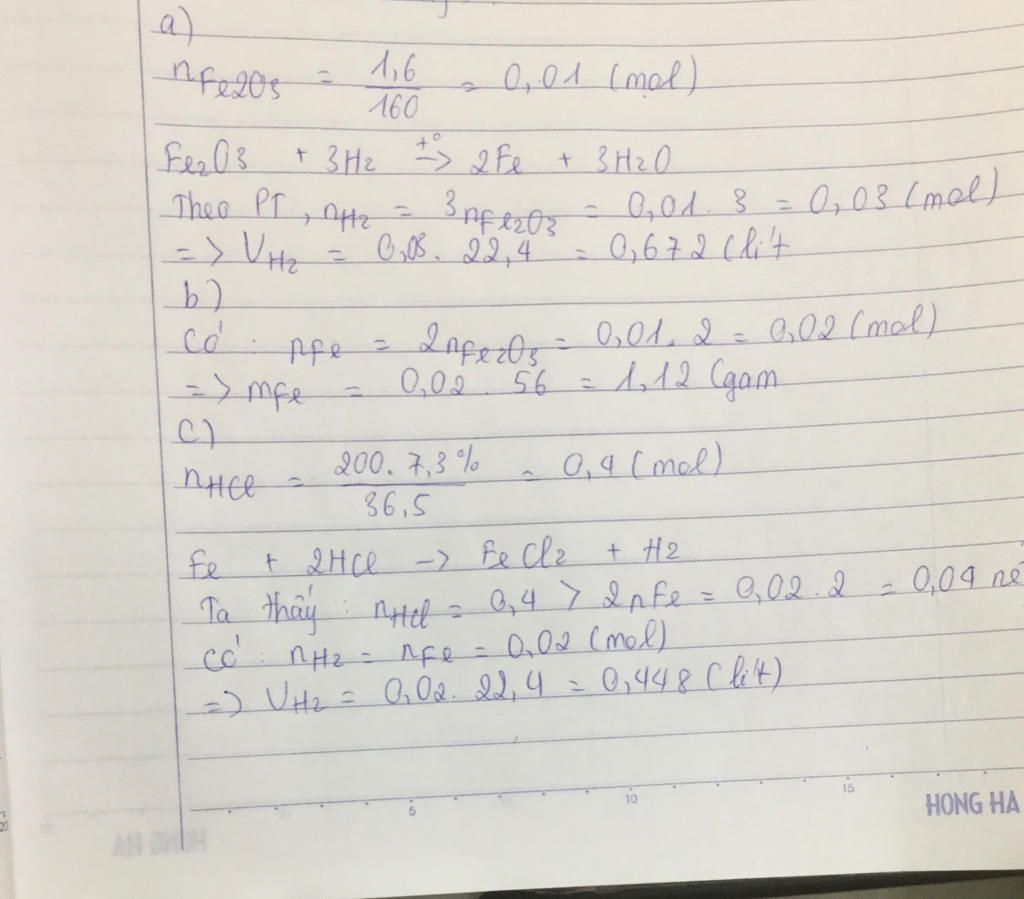 a)
nFe2O3 = 1,6 / 160 = 0,01 (mol)
Fe2O3 + 3H2 t° -> 2Fe + 3H2O
Theo PT, nH2 = 3nFe2O3 = 0,01. 3 = 0,03 (mol)
=> VH2 = 0,03. 22,4 = 0,672 (lít
b)
Có : nFe = 2nFe2O3 = 0,01. 2 = 0,02 (mol)
=> mFe = 0,02. 56 = 1,12 (gam
c)
nHCl = 200. 7,3% / 36,5 = 0,4 (mol)
Fe + 2HCl -> FeCl2 + H2
Ta thấy : nHCl = 0,4 > 2nFe = 0,02. 2 = 0,04
Có : nH2 = nFe = 0,02 (mol)
=> VH2 = 0,02. 22,4 = 0,448 (lít)
5 10 15
HONG HA